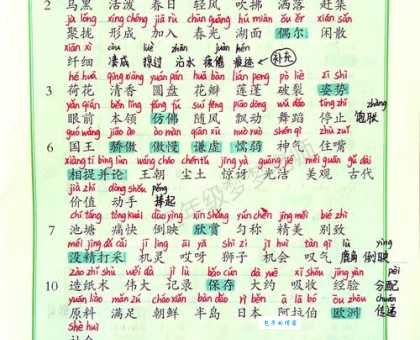 2 乌黑 活泼 春日 轻风 吹拂 洒落 赶集
jù lǒng xíng chéng jiā rù chūn guāng hú miàn ǒu ěr xián sǎn
聚拢 形成 加入 春光 湖面 偶尔 闲散
xiān xì còu lüè zhān juàn hén
纤细 凑成 掠过 沾水 疲倦 痕迹 补充
hé huā qīng xiāng yuán pán huā bàn lián peng pò liè zī shì
3 荷花 清香 圆盘 花瓣 莲蓬 破裂 姿势
yǎn qián běn lǐng fǎng fú suí fēng piāo dòng wǔ dǎo tíng zhǐ
眼前 本领 仿佛 随风 飘动 舞蹈 停止
guó wáng jiāo ào ào màn qiān xū nuò ruò shén qì zhù zuǐ
6 国王 骄傲 傲慢 谦虚 懦弱 神气 住嘴
xiāng tí bìng lùn wáng cháo chén tǔ jīng yà guāng jié měi guān gǔ dài
相提并论 王朝 尘土 惊讶 光洁 美观 古代
jià zhí dòng shǒu pěng
价值 动手 捧起
chí táng tòng kuài dào yìng xīn shǎng yún chèn jīng měi bié zhì
7 池塘 痛快 倒映 欣赏 匀称 精美 别致
méi jīng dǎ cǎi jī líng āi yā shī zi jī huì tàn qì lù yìng
没精打采 机灵 哎呀 狮子 机会 叹气 鹿角 倒映
zào zhǐ shù wěi dà jì lù bǎo cún dà yuē xī shōu jīng yàn pèi
10 造纸术 伟大 记录 保存 大约 吸收 经验 分配
yuán liào mǎn zú cháo xiǎn bàn dǎo rì běn ā lā bó ōu zhōu chuán
原料 满足 朝鲜 半岛 日本 阿拉伯 欧洲 传递
shè huì
社会